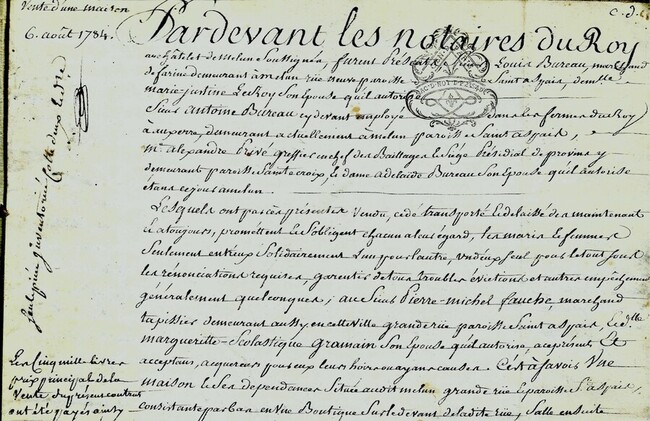 Vente d'une maison
6. août 1784.
c.d.
Pardevant les notaires du Roy
au Châtelet de Melun Soussignés, furent Présents Louis Bureau, marchand
de farine demeurant à melun rüe neuve paroisse Saint aspais, demlle
marie justine Le Roy Son Epouse qu'il autorise
Sieur Antoine Bureau cy devant employé dans les fermes du Roy
à auxerre, demeurant actuellement à melun paroisse Saint aspais,
Me. alexandre Privé greffier en chef des Bailliages & Siége Présidial de provins y
demeurant paroisse Sainte croix, & dame adelaide Bureau Son Epouse qu'il autorise
étans ce jour a melun
Lesquels ont par ces présentes Vendu, cédé transporté & delaissé dès maintenant
& a toujours, promettent & S'obligent chacun a leur égard, les maris & femmes
Seulement entreux Solidairement L'un pour l'autre, un d'eux Seul pour le tout Sous
les rénonciations requises, garentir de tous troubles évictions et autres empêchemens
généralement quelconques; au Sieur Pierre-michel fauche, marchand
tapissier demeurant aussy en cette Ville grande rüe paroisse Saint aspais, & dlle
margueritte-Scolastique gramain Son Epouse qu'il autorise, acceptans Et
acceptans, acquereurs pour eux leurs hoirs ou ayans cause. C'est à savoir Une
maison & Ses dépendances Située audit melun grande rüe & paroisse St aspais,
consistante par bas en Une Boutique Sur le devant de ladite rüe, Salle ensuite
Les Cinq mille livres
prix principal de la
Vente du présent contrat
ont été payés ainsy